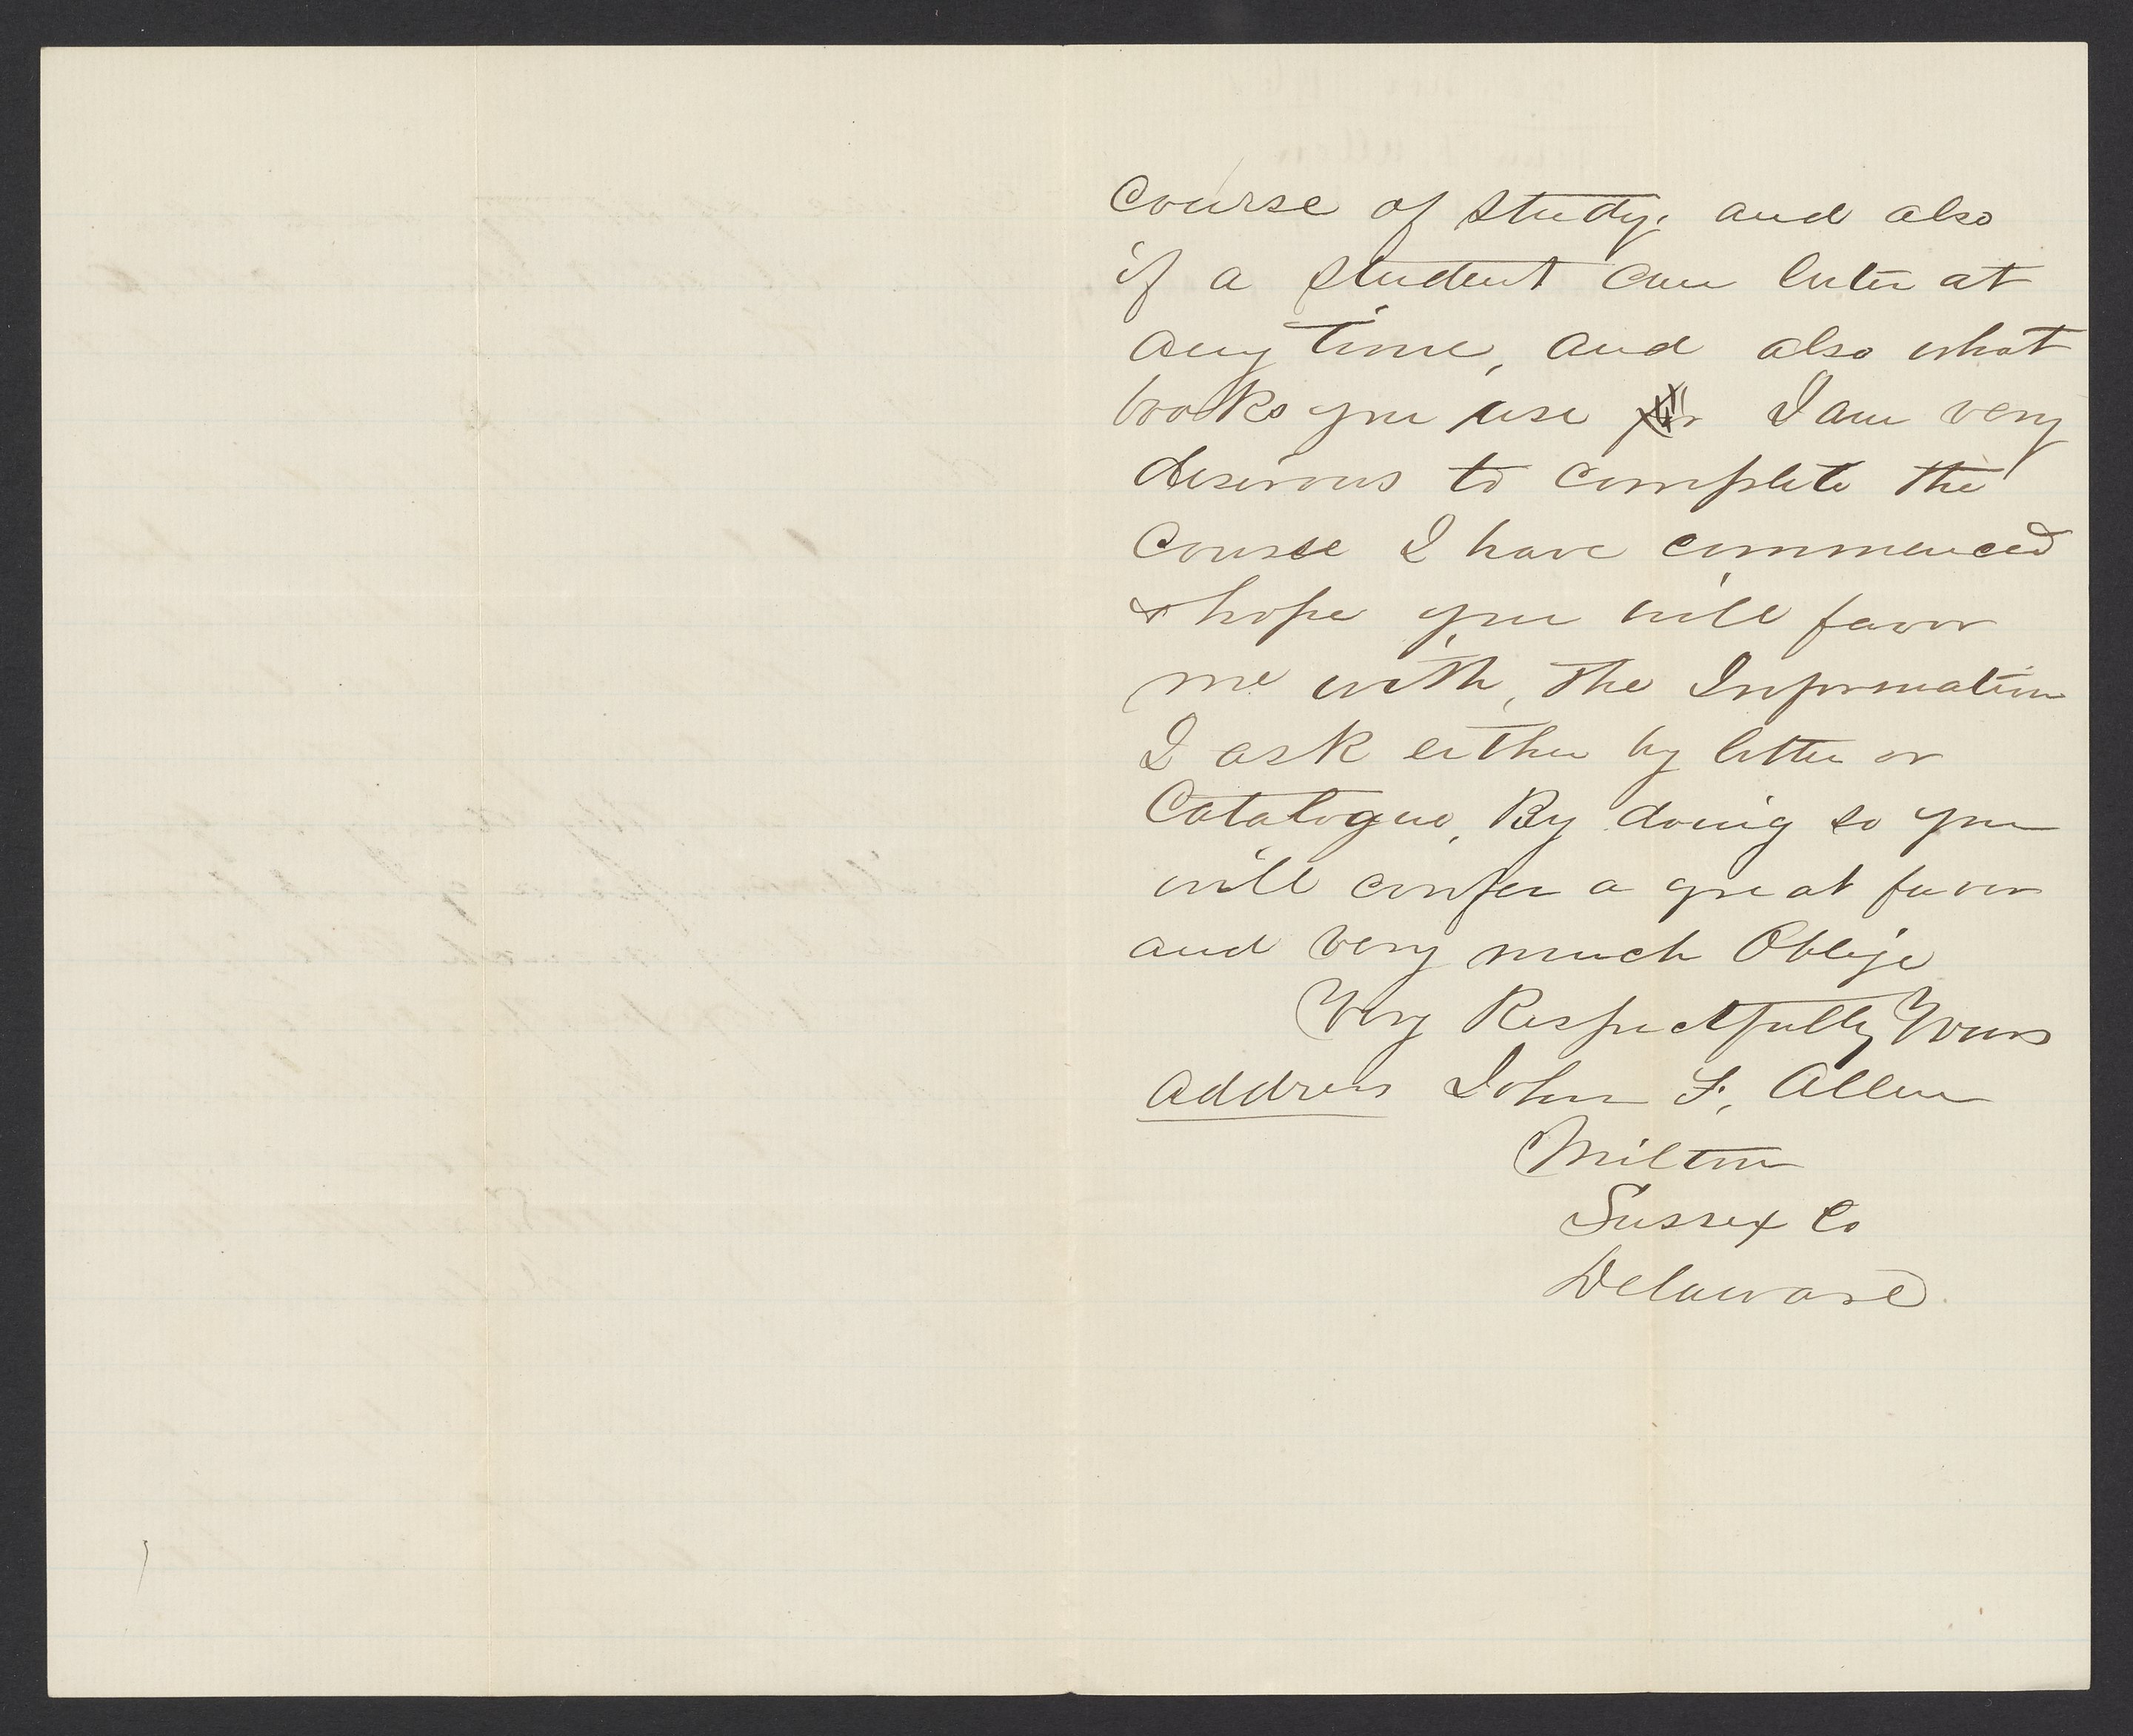 Course of Study, and also
if a Student can Enter at
any time, and also what
books you use I am very
desirous to complete the
Course I have commenced
& hope you will favor
me with, the Information
I ask either by letter or
Catalogue, By doing so you
will confer a great favor
and very much Oblige
Very Respectfully Yours
Address John F. Allen
Milton
Sussex Co
Delaware